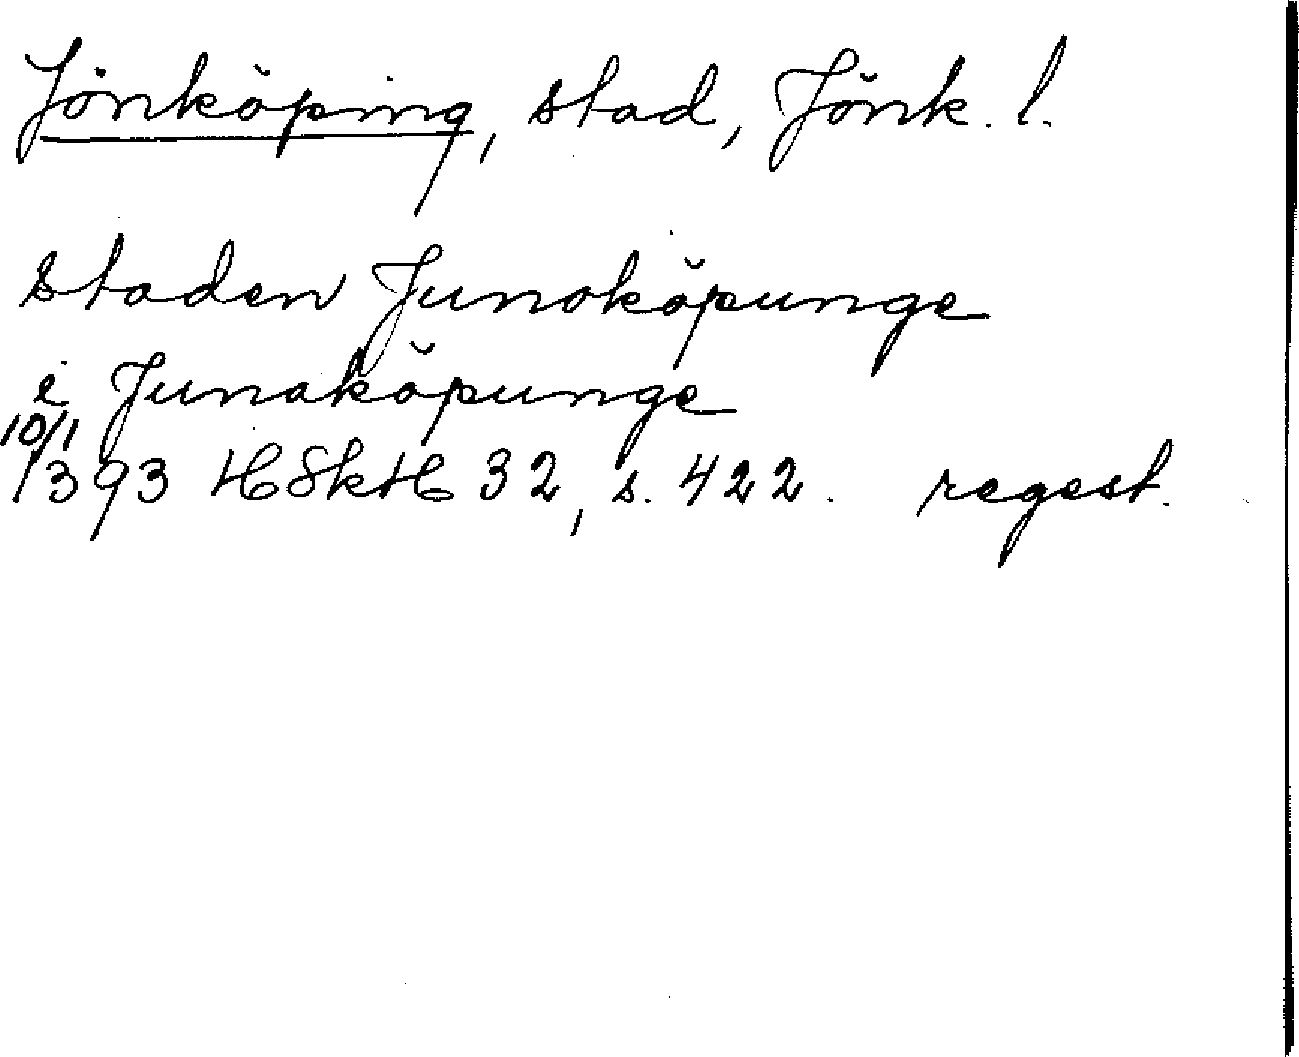 Jönköping, stad, Jönk. l.
staden Junoköpunge
i Junaköpunge
10/1
1393 HSkH 32, s. 422. regest.